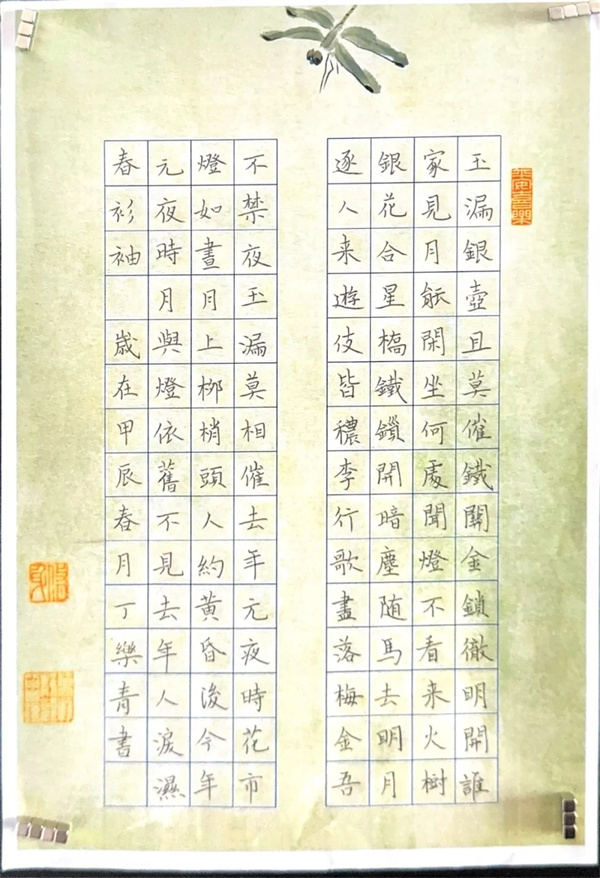 玉漏銀壺且莫催鐵關金鎖徹明開誰
家見月能閑坐何處聞燈不看来火樹
銀花合星橋鐵鎖開暗塵随馬去明月
逐人来遊伎皆穠李行歌盡落梅金吾
不禁夜玉漏莫相催去年元夜時花市
燈如晝月上柳梢頭人約黃昏後今年
元夜時月與燈依舊不見去年人淚濕
春衫袖 歲在甲辰春月丁樂青書
平安喜樂